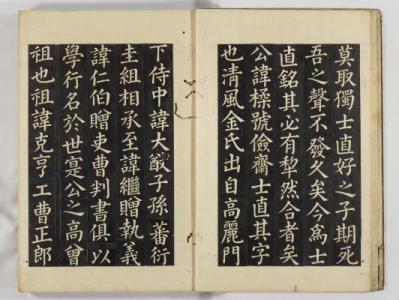 莫取獨士直好之子期死
吾之聲不發久矣今為士
直銘其必有犁然合者矣
公諱楺號儉齋士直其字
也清風金氏出自高麗門
下侍中諱大猷子孫蕃衍
圭組相承至諱繼贈執義
諱仁伯贈吏曹判書俱以
學行名於世寔公之高曾
祖也祖諱克亨工曹正郎